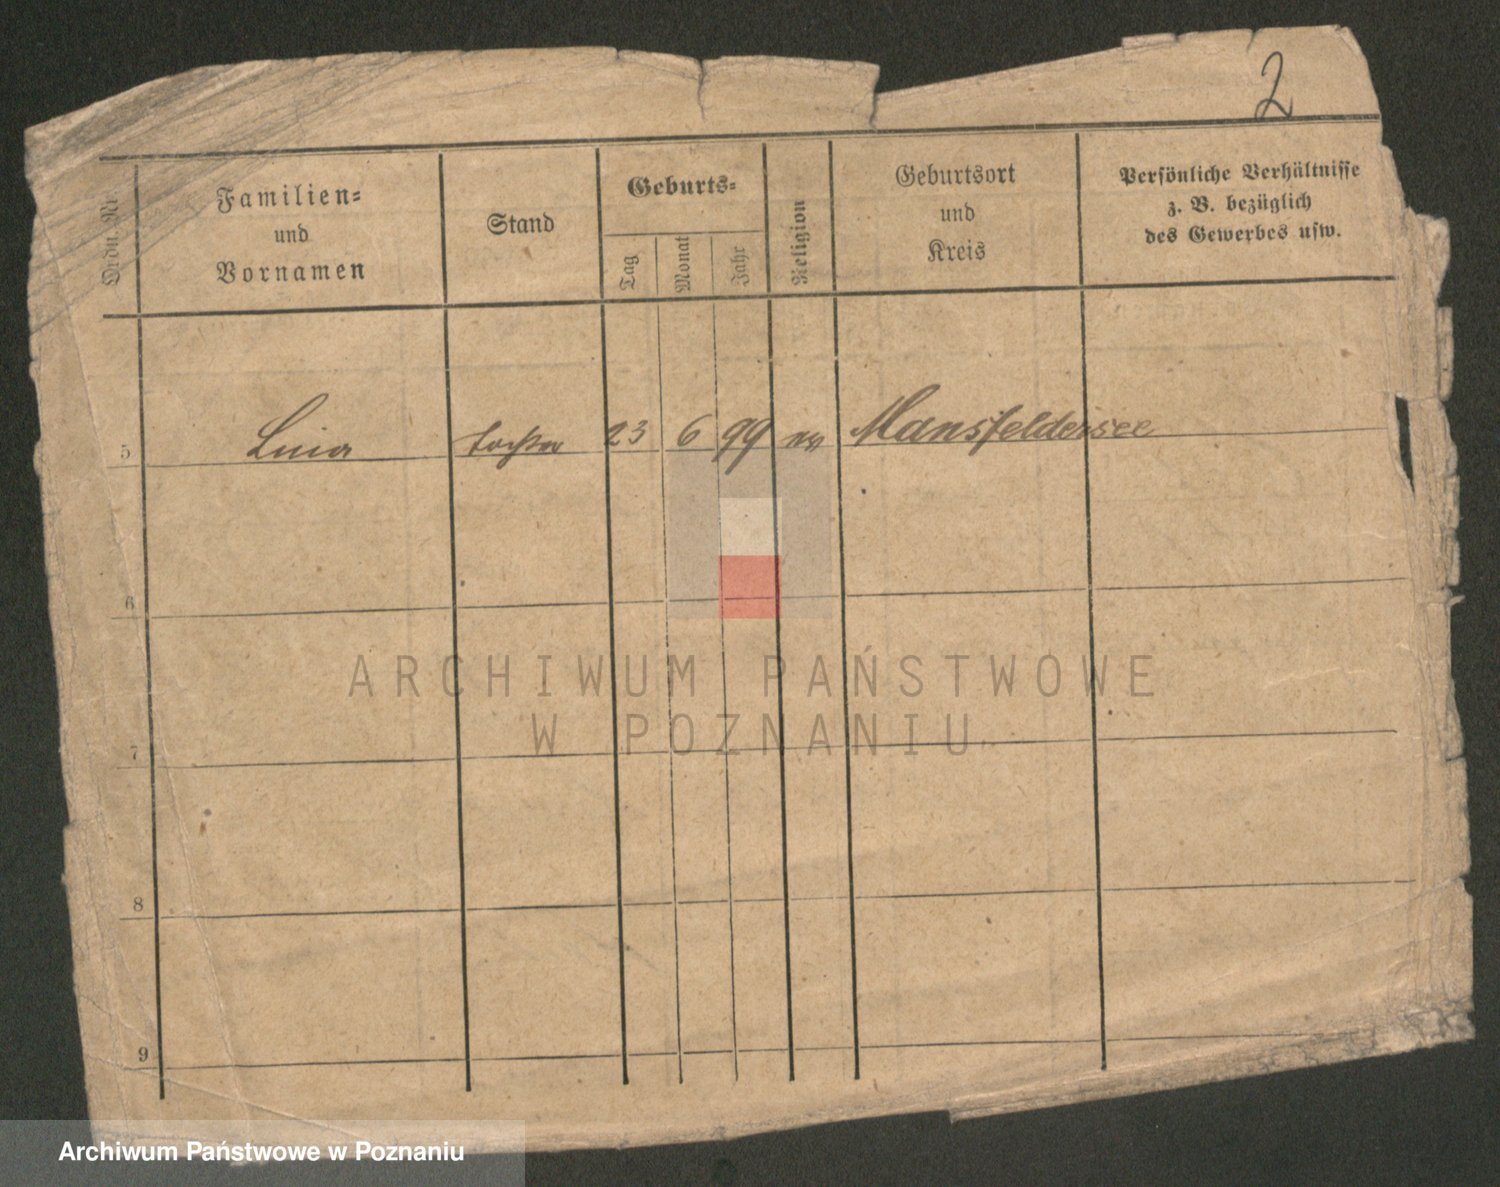 2
Ordn. Nr.
Familien-
und
Vornamen
Stand
Geburts-
Tag
Monat
Jahr
Religion
Geburtsort
und
Kreis
Persönliche Verhältnisse
z. B. bezüglich
des Gewerbes usw.
5 Tochter 23 6 99 ev Mansfeldersee
6
7
8
9
ARCHIWUM PAŃSTWOWE
W POZNANIU
Archiwum Państwowe w Poznaniu